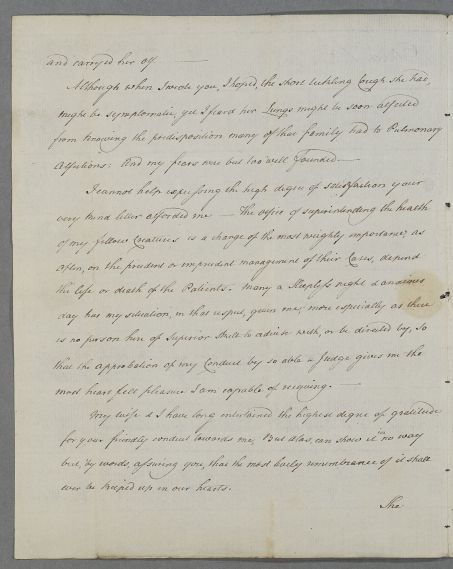 and carryed her off —
Although when I wrote you, I hoped, the short tickling Cough she had,
might be symptomatic, yet I feard her Lungs might be soon affected
from knowing the predisposition many of that family had to Pulmonary
Affections: And my fears were but too well founded —
I cannot help expressing the high degree of satisfaction your
very kind letter afforded me — The office of superintending the health
of my fellow Creatures is a charge of the most weighty importance; as
often, on the prudent or imprudent management of their Cases, depend
the life or death of the Patients. Many a Sleepless night & anxious
day has my situation, in that respect, given me; more especially as there
is no person here of Superior Skill to advise with, or be directed by, so
that the approbation of my Conduct by so able a Judge gives me the
most heart felt pleasure I am capable of receiving. —
My wife & I have long entertained the highest degree of gratitude
for your friendly conduct towards me, But alas, can show it in no way
but, by words, assuring you, that the most lively remembrance of it shall
ever be keeped up in our hearts.
She